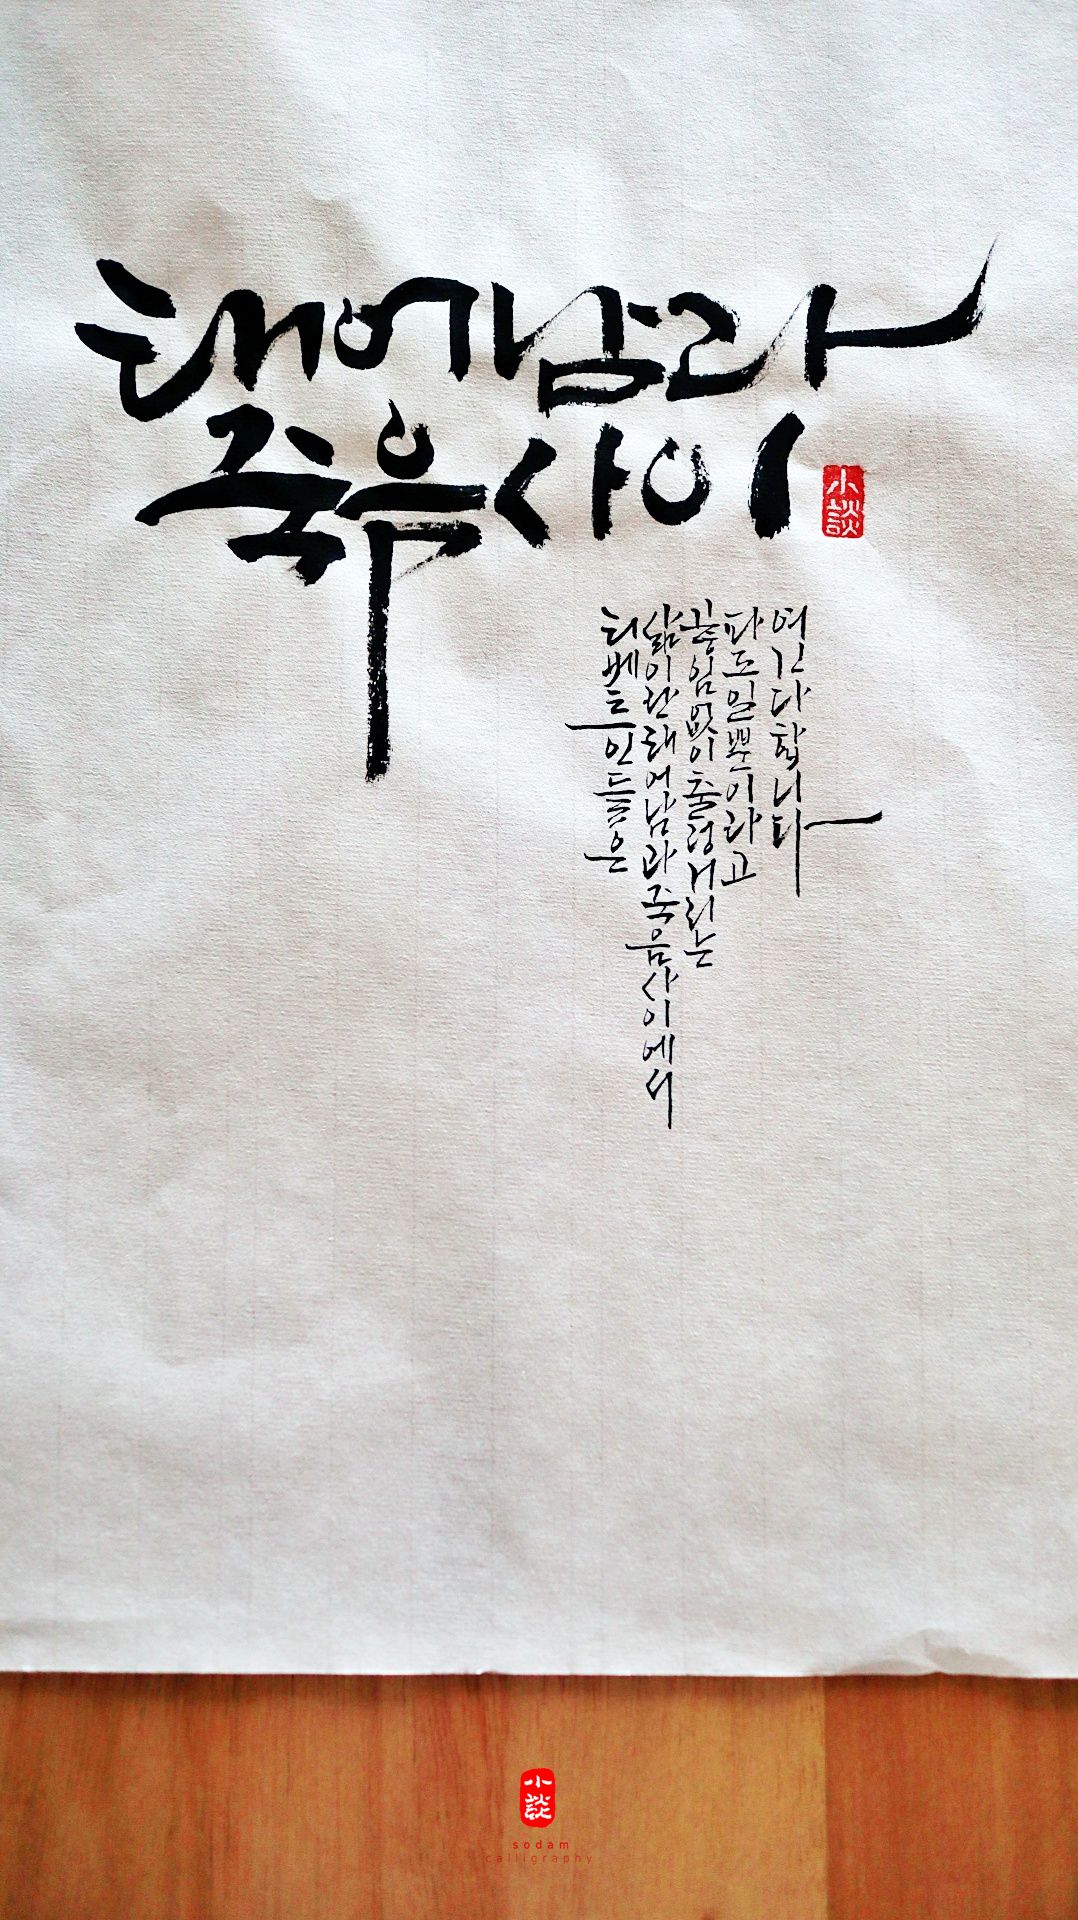 태어남과
죽음 사이
小談
티베트인들은
삶이란 태어남과 죽음 사이에서
끊임없이 출렁거리는
파도일 뿐이라고
여긴다 합니다
小談
sodam
calligraphy